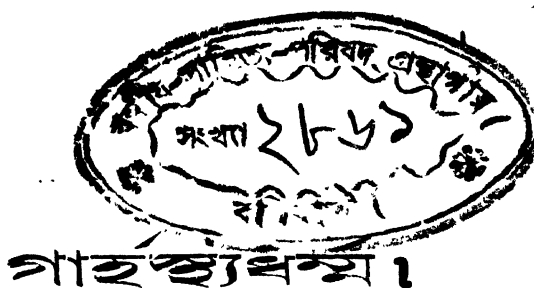 সাহিত্য-পরিষদ গ্রন্থাগার
সংখ্যা ২৮৬১
গার্হস্থ্যধর্ম্ম।